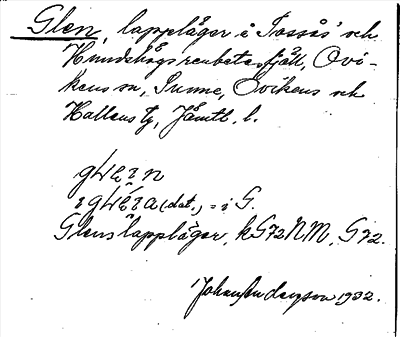 Glen, lappläger i Tossås' och
Hundshögs renbetesfjäll, Ovi-
kens sn, Sunne, Ovikens och
Hallens tg, Jämtl. l.
i (dat.) = i G.
Glens lappläger, k G72 NM, G72.
Johan Anderson 1932.